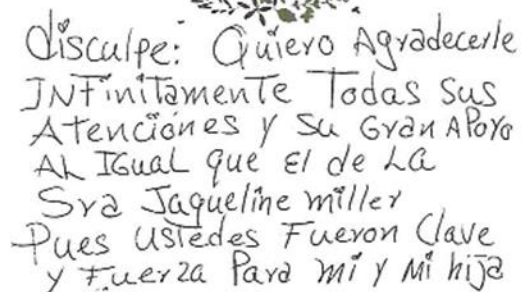 disculpe: Quiero Agradecerle
INFinitamente Todas sus
Atenciones y su Gran Apoyo
AL IGual que El de La
Sra Jaqueline miller
Pues ustedes Fueron Clave
y Fuerza Para mi y Mi hija